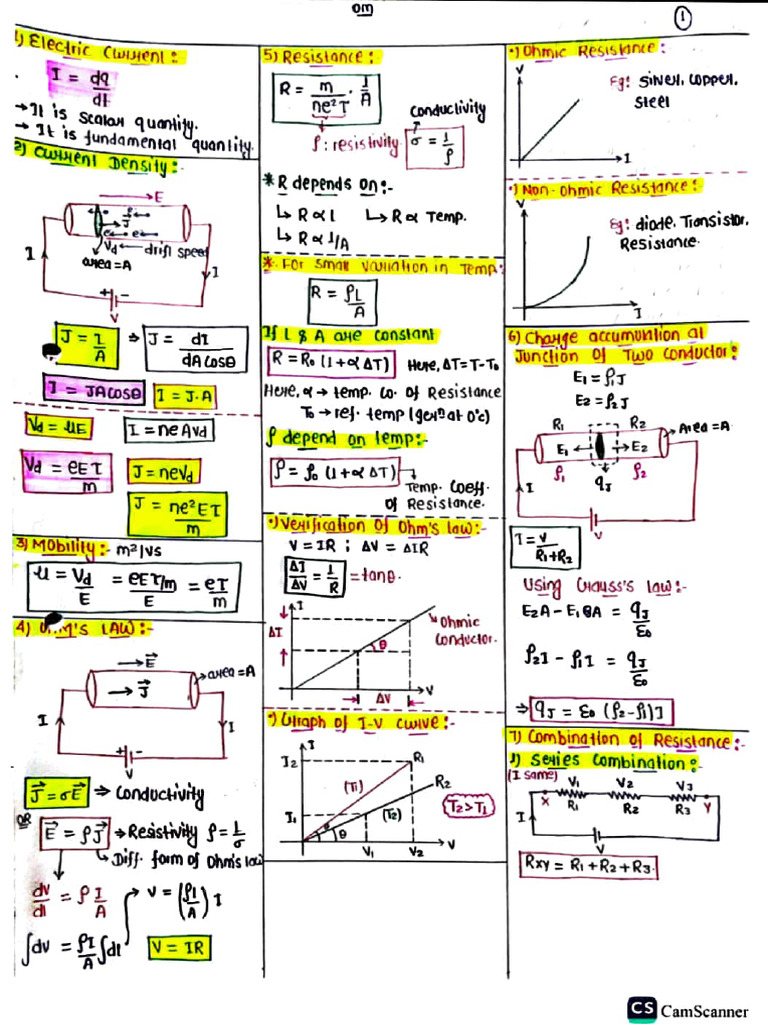 OM
1
1) Electric Current :-
I = dq/dt
→ It is scalar quantity.
→ It is fundamental quantity.
2) Current Density :-
E
e
J
e← e←
Vd ← drift speed
area = A
I
I
+ -
V
J = I/A ⇒ J = dI/dAcosθ
I = JAcosθ
I = J·A
Vd = uE
I = neAVd
Vd = eEτ/m
J = neVd
J = ne²Eτ/m
3) Mobility :- m²/vs
u = Vd/E = eEτ/m/E = eτ/m
4) OHM'S LAW :-
→E
→J
area = A
I
I
+ -
V
J = σE ⇒ Conductivity
OR
E = ρJ ⇒ Resistivity ρ = 1/σ
↳ Diff. form of Ohm's law
dv/dl = ρ I/A
V = (ρl/A) I
∫dv = ρI/A ∫dl
V = IR
5) Resistance :
R = m/ne²τ · l/A
ρ : resistivity
conductivity
σ = 1/ρ
* R depends on :-
↳ R ∝ l ↳ R ∝ Temp.
↳ R ∝ 1/A
* For small variation in Temp :
R = ρL/A
If L & A are constant
R = R₀ (1+α ΔT) Here, ΔT = T-T₀
Here, α → temp. co. of Resistance
T₀ → ref. temp (genⁿ at 0°c)
ρ depend on temp :-
ρ = ρ₀ (1+α ΔT)
Temp. Coeff.
of Resistance.
•) Verification of Ohm's law :-
V = IR ; ΔV = ΔIR
ΔI/ΔV = 1/R = tanθ.
I
ΔI
θ
Ohmic
Conductor.
ΔV
V
•) Graph of I-V curve :-
I
I2
R1
(T1)
R2
I1
(T2)
T2 > T1
θ
θ
V1
V2
V
•) Ohmic Resistance :
V
Eg: Silver, Copper,
Steel
I
•) Non-Ohmic Resistance :
V
Eg: diode, Transistor,
Resistance.
I
6) Charge accumulation at
Junction of Two Conductor :
E1 = ρ1J
E2 = ρ2J
R1
R2
Area = A
E1 ←
→ E2
ρ1
ρ2
qJ
I
V
I = V/R1+R2
Using Gauss's law :-
E2A - E1A = qJ/ε0
ρ2I - ρ1I = qJ/ε0
⇒ qJ = ε0 (ρ2-ρ1)I
7) Combination of Resistance :-
1) Series Combination :-
(I same)
V1
V2
V3
X
R1
R2
R3
Y
I
V
Rxy = R1 + R2 + R3.
CS CamScanner